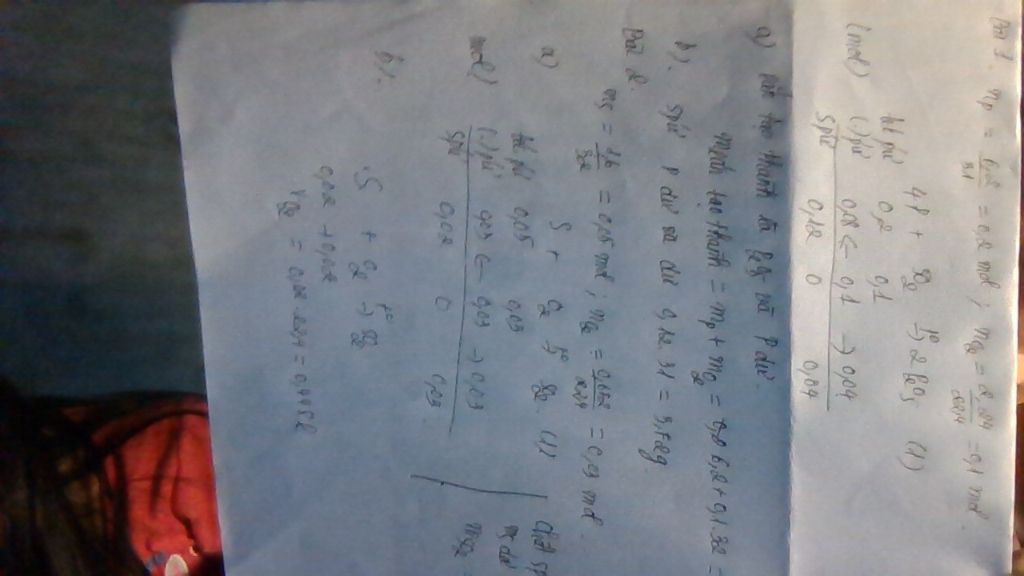 Bài 1. nP = 6,2/31 = 0,2 mol ; nO2 = 2,24/22,4 = 0,1 mol.
4P + 5O2 -t°-> 2P2O5 (1)
(mol) td pư 0,2 0,1
(1) pư 0,08 ← 0,1 → 0,04
Spư 0,12 0 0,04
a) tạo thành là P2O5 và P dư.
tạo thành = mP + mO2 = 6,2 + 0,1.32 =
b). Spư P dư và dư 0,12.31 = 3,72g
Bài 2.
nS = 1,6/32 = 0,05 mol ; nO2 = 0,672/22,4 = 0,03 mol.
a) S + O2 -t°-> SO2 (1)
mol) td pư 0,05 0,03
(1) pư 0,03 ← 0,03 → 0,03
Spư 0,02 0 0,03
Chất
mS dư
mSO2 =
b). S + O2 -t°-> SO2
0,02 → 0,02
VO2 = 0,02.22,4 = 0,448l